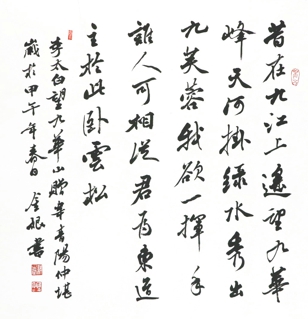 昔在九江上遙望九華
峰天河掛綠水秀出
九芙蓉我欲一揮手
誰人可相從君為東道
主於此臥雲松
李太白望九華山贈韋青陽仲堪
歲於甲午年春日
書